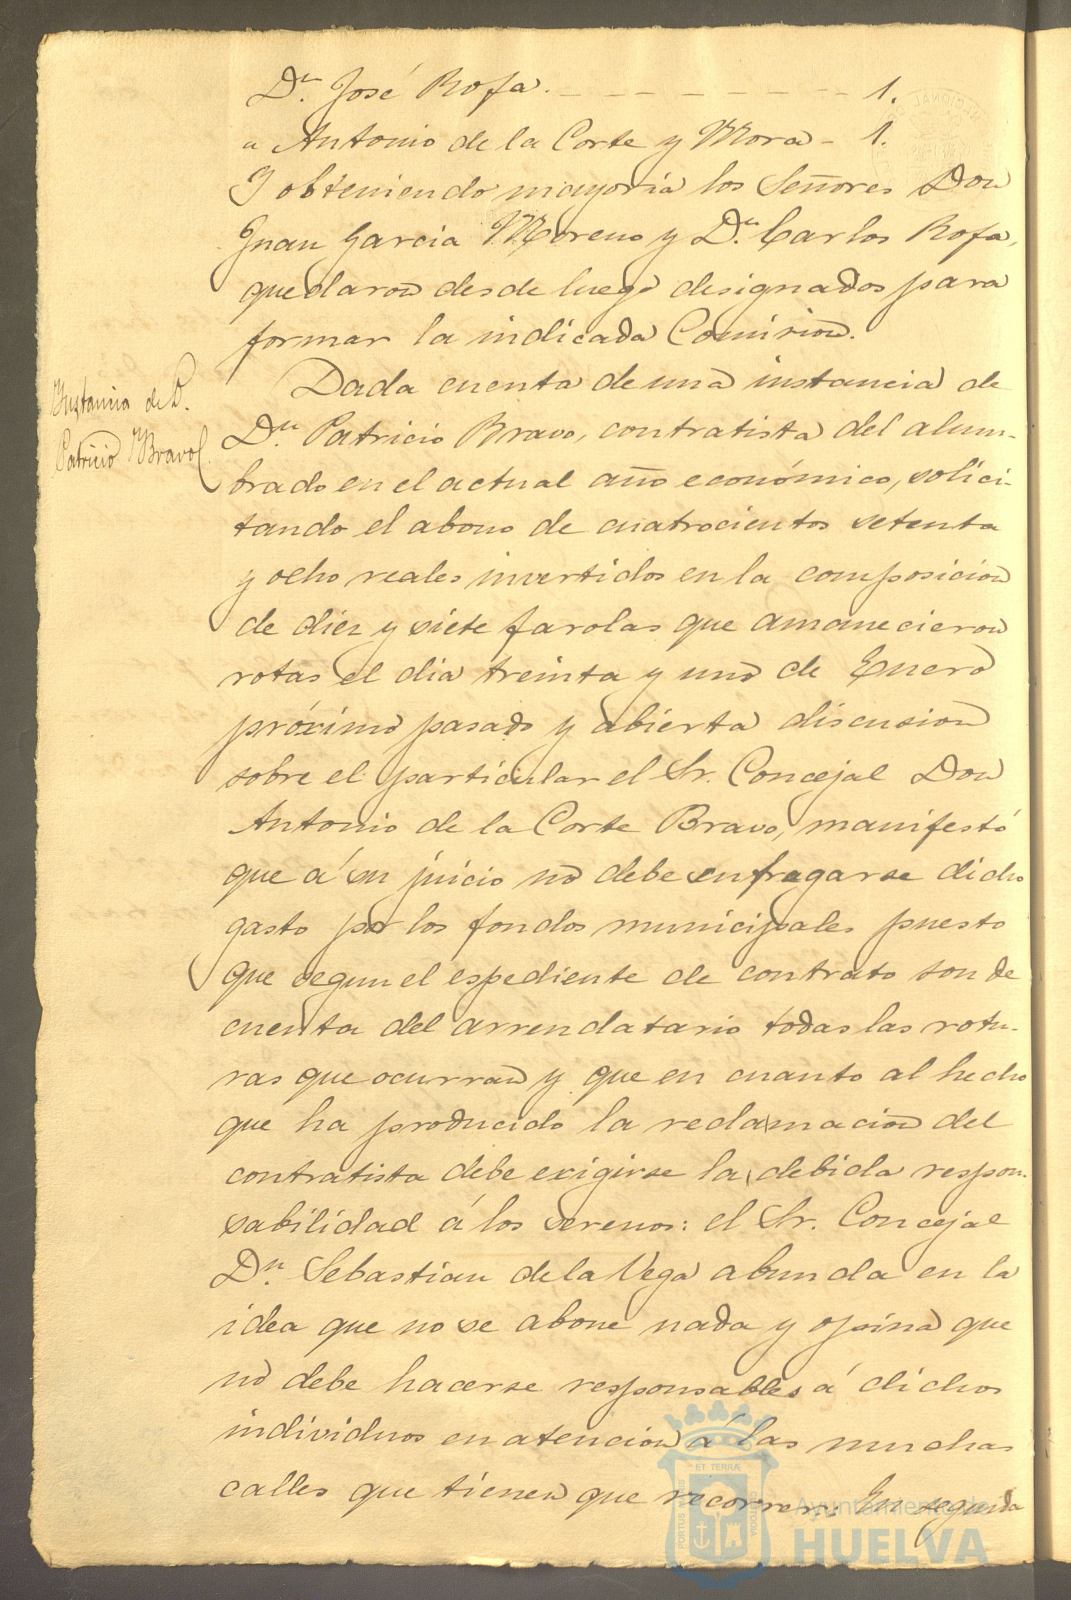 Dn. José Rofa. — — — — — — — 1.
" Antonio de la Corte y Mora - 1.
Y obteniendo mayoria los Señores Don
Juan Garcia Moreno y Dn. Carlos Rofa,
quedaron desde luego designados para
formar la indicada Comision.
Instancia de D.
Patricio Bravo
Dada cuenta de una instancia de
Dn. Patricio Bravo, contratista del alum-
brado en el actual año económico, solici-
tando el abono de cuatrocientos setenta
y ocho reales invertidos en la composicion
de diez y siete farolas que amanecieron
rotas el dia treinta y uno de Enero
próximo pasado y abierta discusion
sobre el particular el Sr. Concejal Don
Antonio de la Corte Bravo, manifestó
que á su juicio no debe sufragarse dicho
gasto por los fondos municipales puesto
que segun el espediente de contrato son de
cuenta del arrendatario todas las rotu-
ras que ocurran y que en cuanto al hecho
que ha producido la reclamacion del
contratista debe exigirse la debida respon-
sabilidad á los serenos: el Sr. Concejal
Dn. Sebastian de la Vega abunda en la
idea que no se abone nada y opina que
no debe hacerse responsables á dichos
individuos en atencion á las muchas
calles que tienen que recorrer. En seguida
ET TERRÆ
PORTUS MARIS
CUSTODIA
Ayuntamiento de
HUELVA